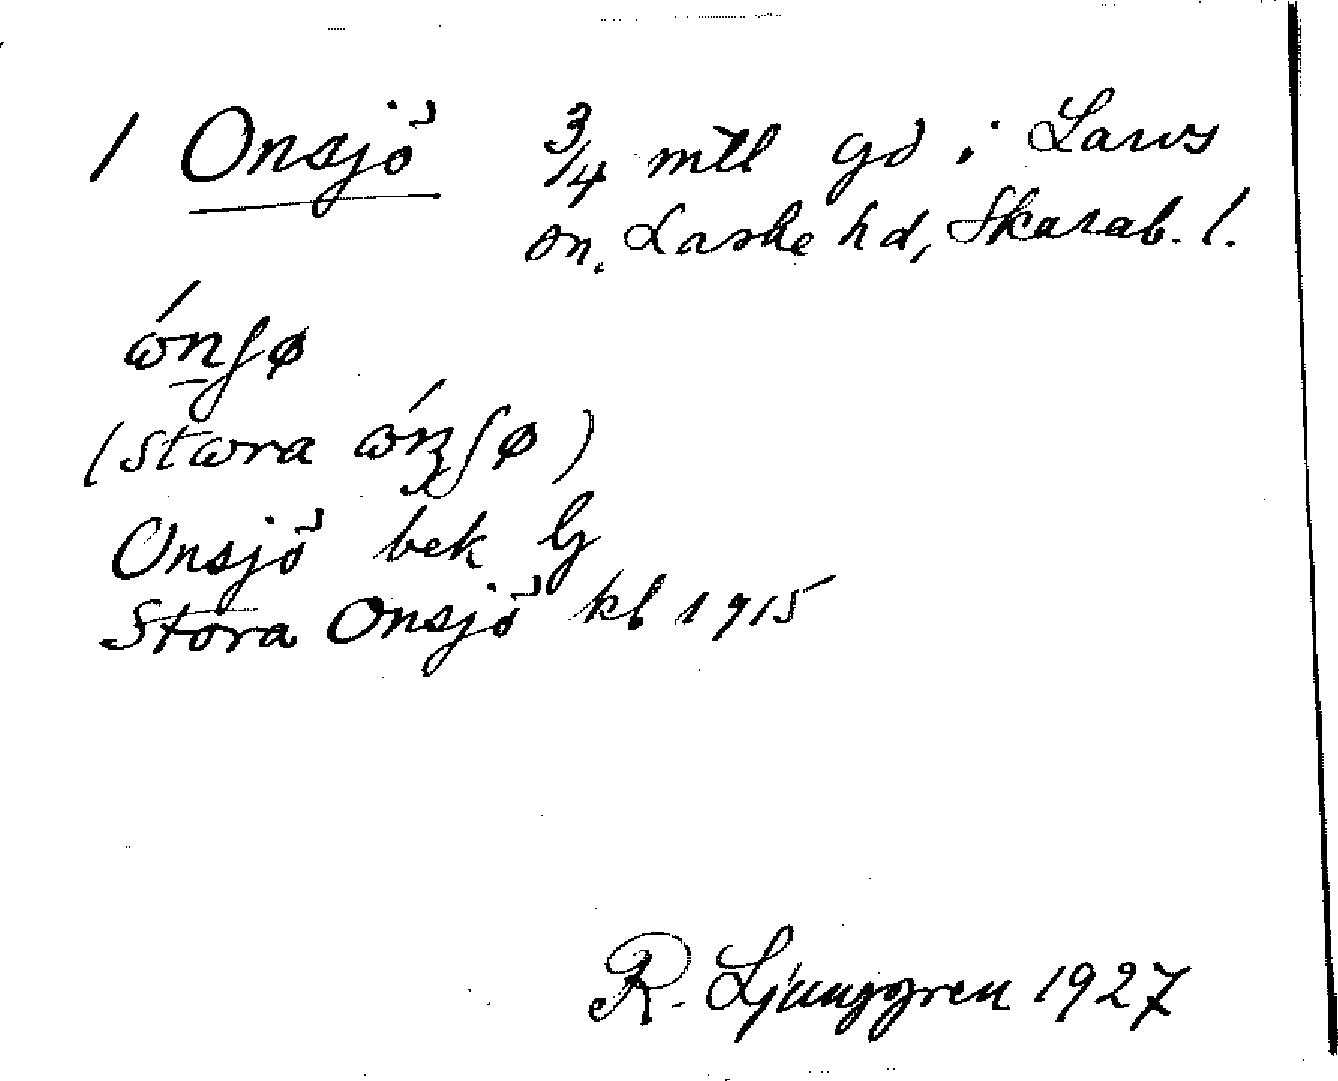 1 Onsjö 3/4 mtl gd i Larvs
sn. Laske hd, Skarab. l.
ώnʃø
(stωra ώnʃø)
Onsjö bek G
Stora Onsjö kb 1915
R. Ljunggren 1927